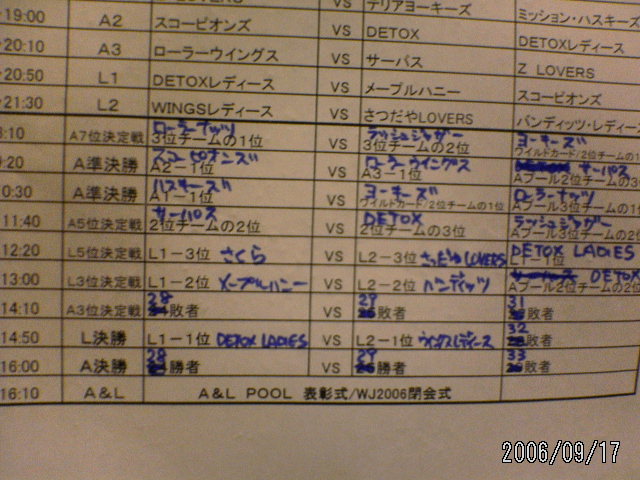 VS テリアヨーキーズ ミッション・ハスキーズ
19:00 A2 スコーピオンズ VS DETOX DETOXレディース
20:10 A3 ローラーウイングス VS サーパス Z LOVERS
20:50 L1 DETOXレディース VS メープルハニー スコーピオンズ
21:30 L2 WINGSレディース VS さつだやLOVERS バンディッツ・レディー
8:10 A7位決定戦 ローラーナッツ 3位チームの1位 VS ラッシュジャガー 3位チームの2位 ヨーキーズ ワイルドカード/2位チームの1
9:20 A準決勝 スコーピオンズ A2-1位 VS ローラーウイングス A3-1位 サーパス Aプール2位チームの3
0:30 A準決勝 ハスキーズ A1-1位 VS ヨーキーズ ワイルドカード/2位チームの1位 ローラーナッツ Aプール3位チームの1
11:40 A5位決定戦 サーパス 2位チームの2位 VS DETOX 2位チームの3位 ラッシュジャガー Aプール3位チームの
12:20 L5位決定戦 L1-3位 さくら VS L2-3位 さつだやLOVERS DETOX LADIES L1-1位
13:00 L3位決定戦 L1-2位 メープルハニー VS L2-2位 バンディッツ DETO Aプール2位チームの
14:10 A3位決定戦 28 敗者 VS 29 敗者 31 敗者
14:50 L決勝 L1-1位 DETOX LADIES VS L2-1位 ウイングスレディース 32 敗者
16:00 A決勝 28 勝者 VS 29 勝者 33 敗者
16:10 A&L A&L POOL 表彰式/WJ2006閉会式
2006/09/17